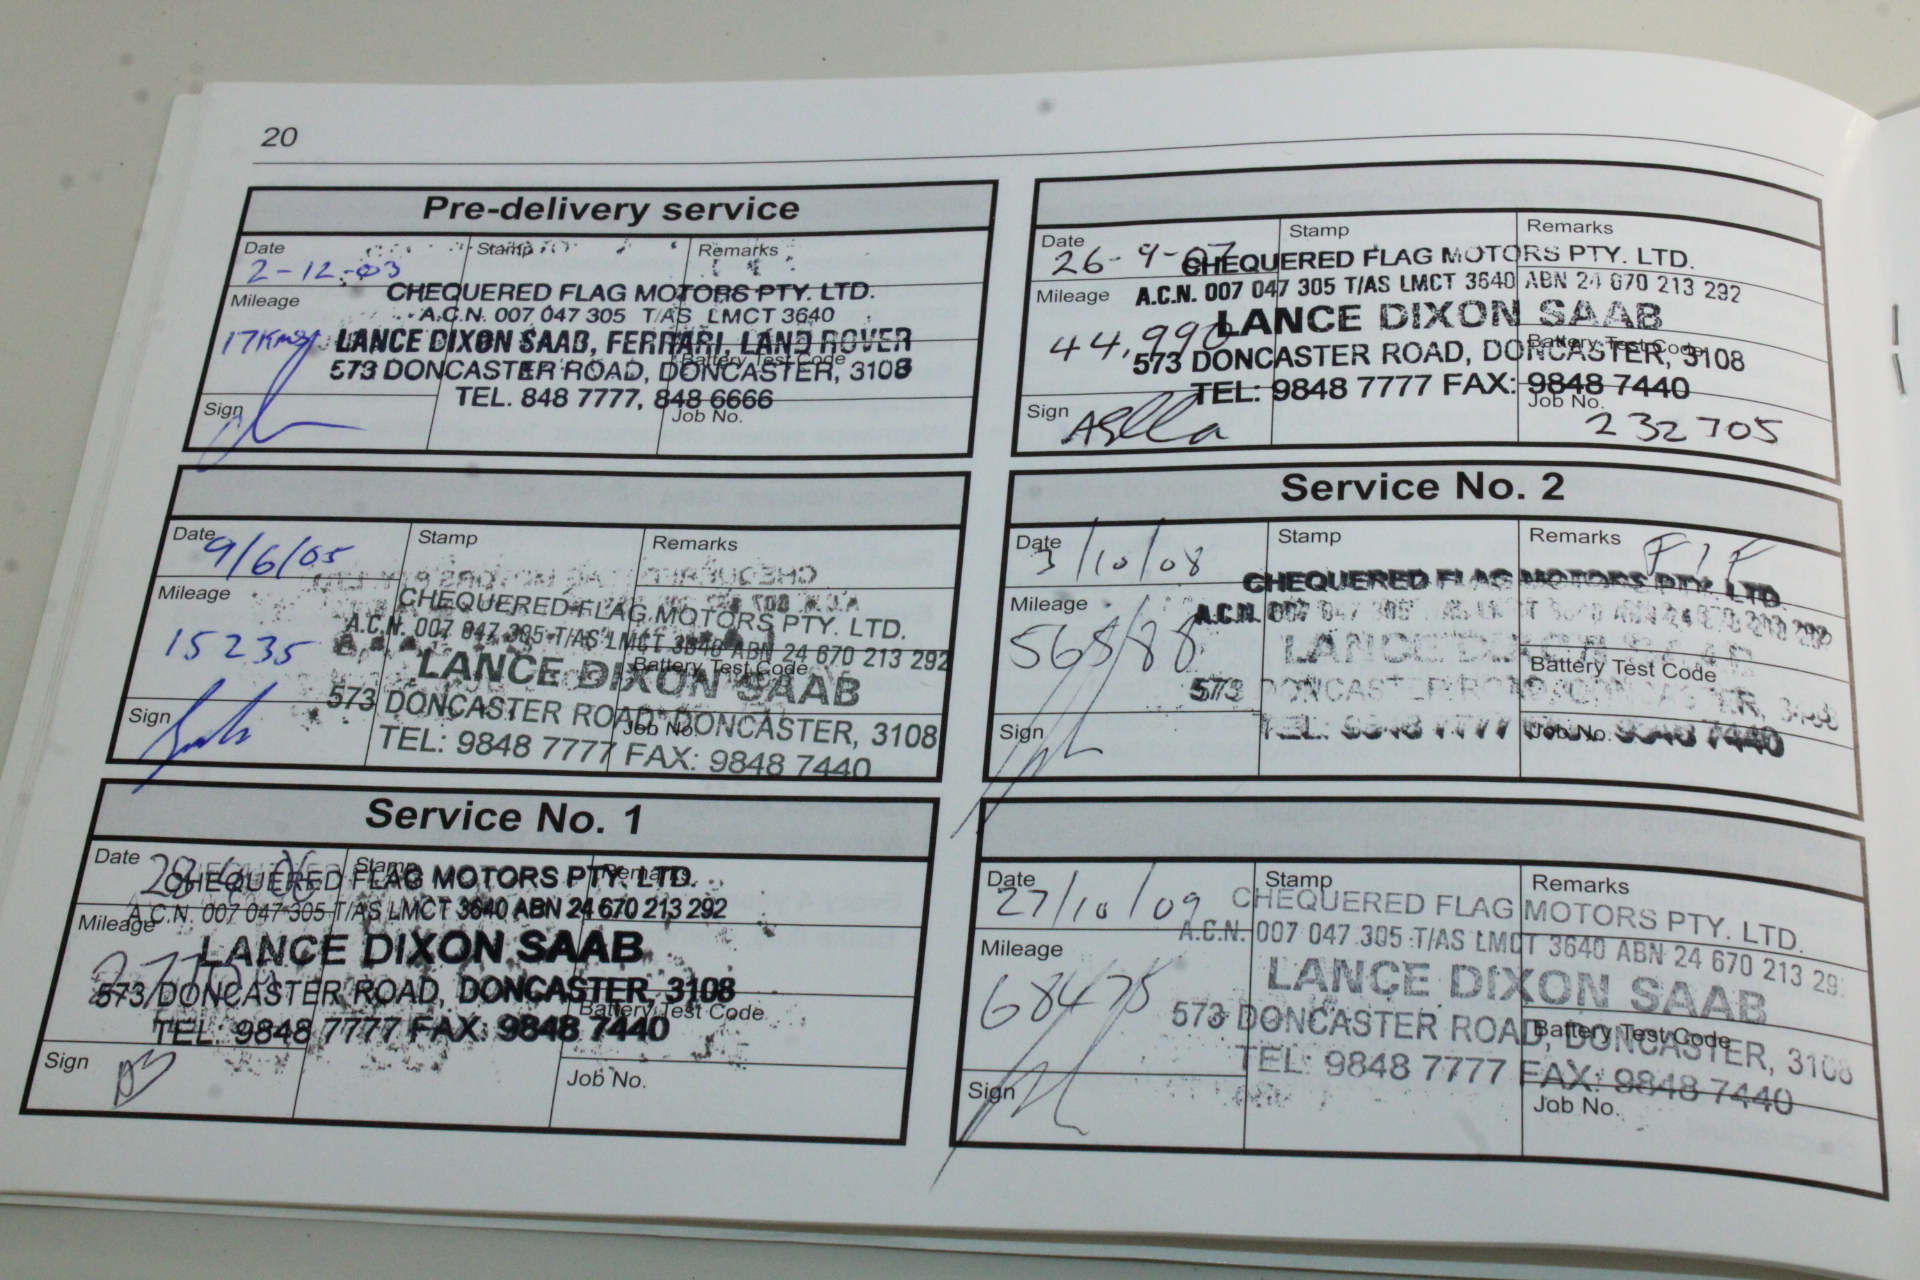 20
Pre-delivery service
Date
Stamp
Remarks
2-12-03
Mileage
17Kms
CHEQUERED FLAG MOTORS PTY. LTD.
A.C.N. 007 047 305 T/AS LMCT 3640
LANCE DIXON SAAB, FERRARI, LAND ROVER
Battery Test Code
573 DONCASTER ROAD, DONCASTER, 3108
TEL. 848 7777, 848 6666
Sign
Job No.
Date
Stamp
Remarks
9/6/05
Mileage
15235
CHEQUERED FLAG MOTORS PTY. LTD.
A.C.N. 007 047 305 T/AS LMCT 3640 ABN 24 670 213 292
LANCE DIXON SAAB
Battery Test Code
573 DONCASTER ROAD, DONCASTER, 3108
TEL: 9848 7777 FAX: 9848 7440
Sign
Job No.
Service No. 1
Date
Stamp
Remarks
28-6-06
CHEQUERED FLAG MOTORS PTY. LTD.
A.C.N. 007 047 305 T/AS LMCT 3640 ABN 24 670 213 292
Mileage
LANCE DIXON SAAB
573 DONCASTER ROAD, DONCASTER, 3108
Battery Test Code
TEL: 9848 7777 FAX: 9848 7440
Sign
Job No.
Date
Stamp
Remarks
26-9-07
CHEQUERED FLAG MOTORS PTY. LTD.
Mileage
A.C.N. 007 047 305 T/AS LMCT 3640 ABN 24 670 213 292
44,990
LANCE DIXON SAAB
Battery Test Code
573 DONCASTER ROAD, DONCASTER, 3108
TEL: 9848 7777 FAX: 9848 7440
Sign
Job No.
232705
Service No. 2
Date
Stamp
Remarks
3/10/08
CHEQUERED FLAG MOTORS PTY. LTD.
Mileage
A.C.N. 007 047 305 T/AS LMCT 3640 ABN 24 670 213 292
56588
LANCE DIXON SAAB
Battery Test Code
573 DONCASTER ROAD, DONCASTER, 3108
TEL: 9848 7777 FAX: 9848 7440
Sign
Job No.
Date
Stamp
Remarks
27/10/09
CHEQUERED FLAG MOTORS PTY. LTD.
A.C.N. 007 047 305 T/AS LMCT 3640 ABN 24 670 213 29
Mileage
68475
LANCE DIXON SAAB
573 DONCASTER ROAD, DONCASTER, 3108
Battery Test Code
TEL: 9848 7777 FAX: 9848 7440
Sign
Job No.